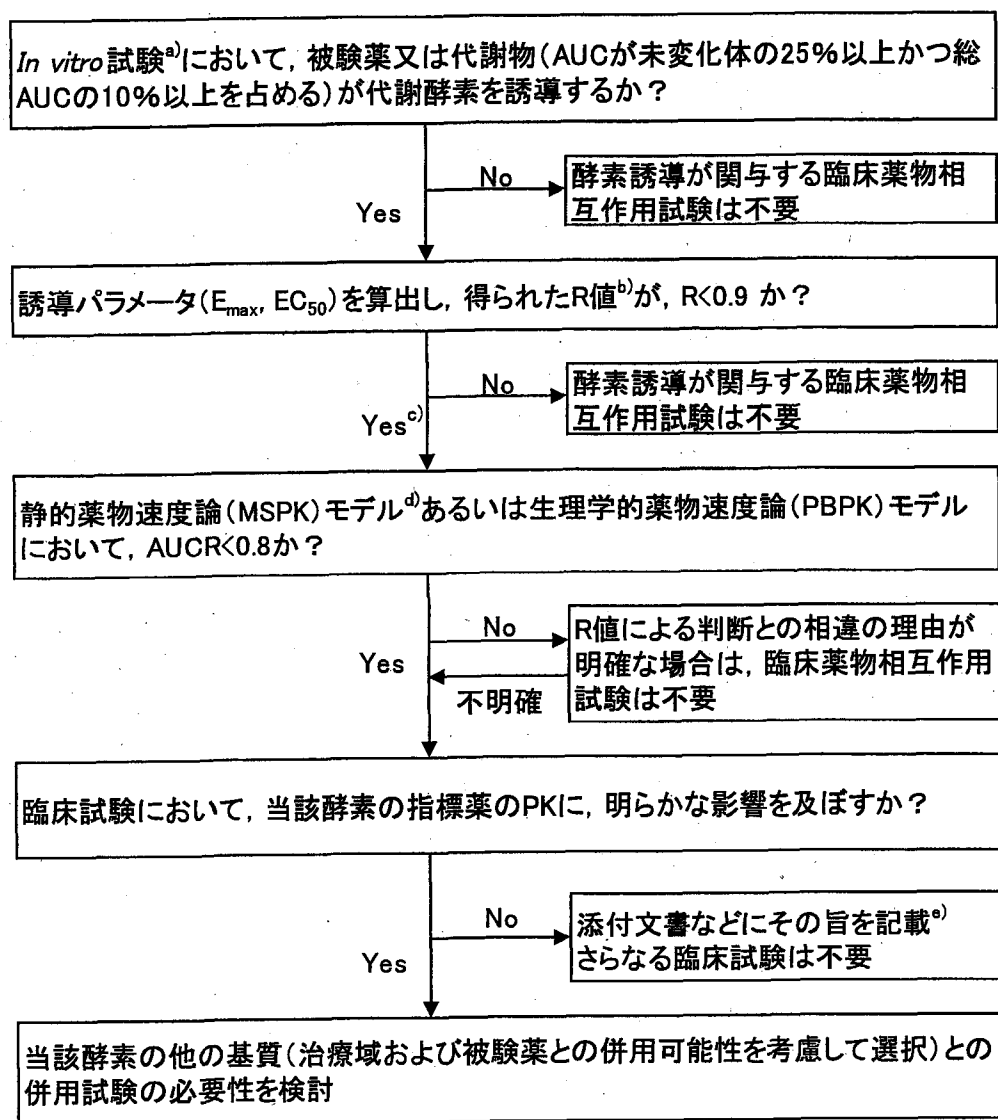 In vitro試験a)において，被験薬又は代謝物(AUCが未変化体の25%以上かつ総
AUCの10%以上を占める)が代謝酵素を誘導するか？
No
酵素誘導が関与する臨床薬物相
互作用試験は不要
Yes
誘導パラメータ(Emax, EC50)を算出し，得られたR値b)が，R<0.9 か？
No
酵素誘導が関与する臨床薬物相
互作用試験は不要
Yesc)
静的薬物速度論(MSPK)モデルd)あるいは生理学的薬物速度論(PBPK)モデル
において，AUCR<0.8か？
No
R値による判断との相違の理由が
明確な場合は，臨床薬物相互作用
試験は不要
Yes
不明確
臨床試験において，当該酵素の指標薬のPKに，明らかな影響を及ぼすか？
No
添付文書などにその旨を記載e)
さらなる臨床試験は不要
Yes
当該酵素の他の基質(治療域および被験薬との併用可能性を考慮して選択)との
併用試験の必要性を検討